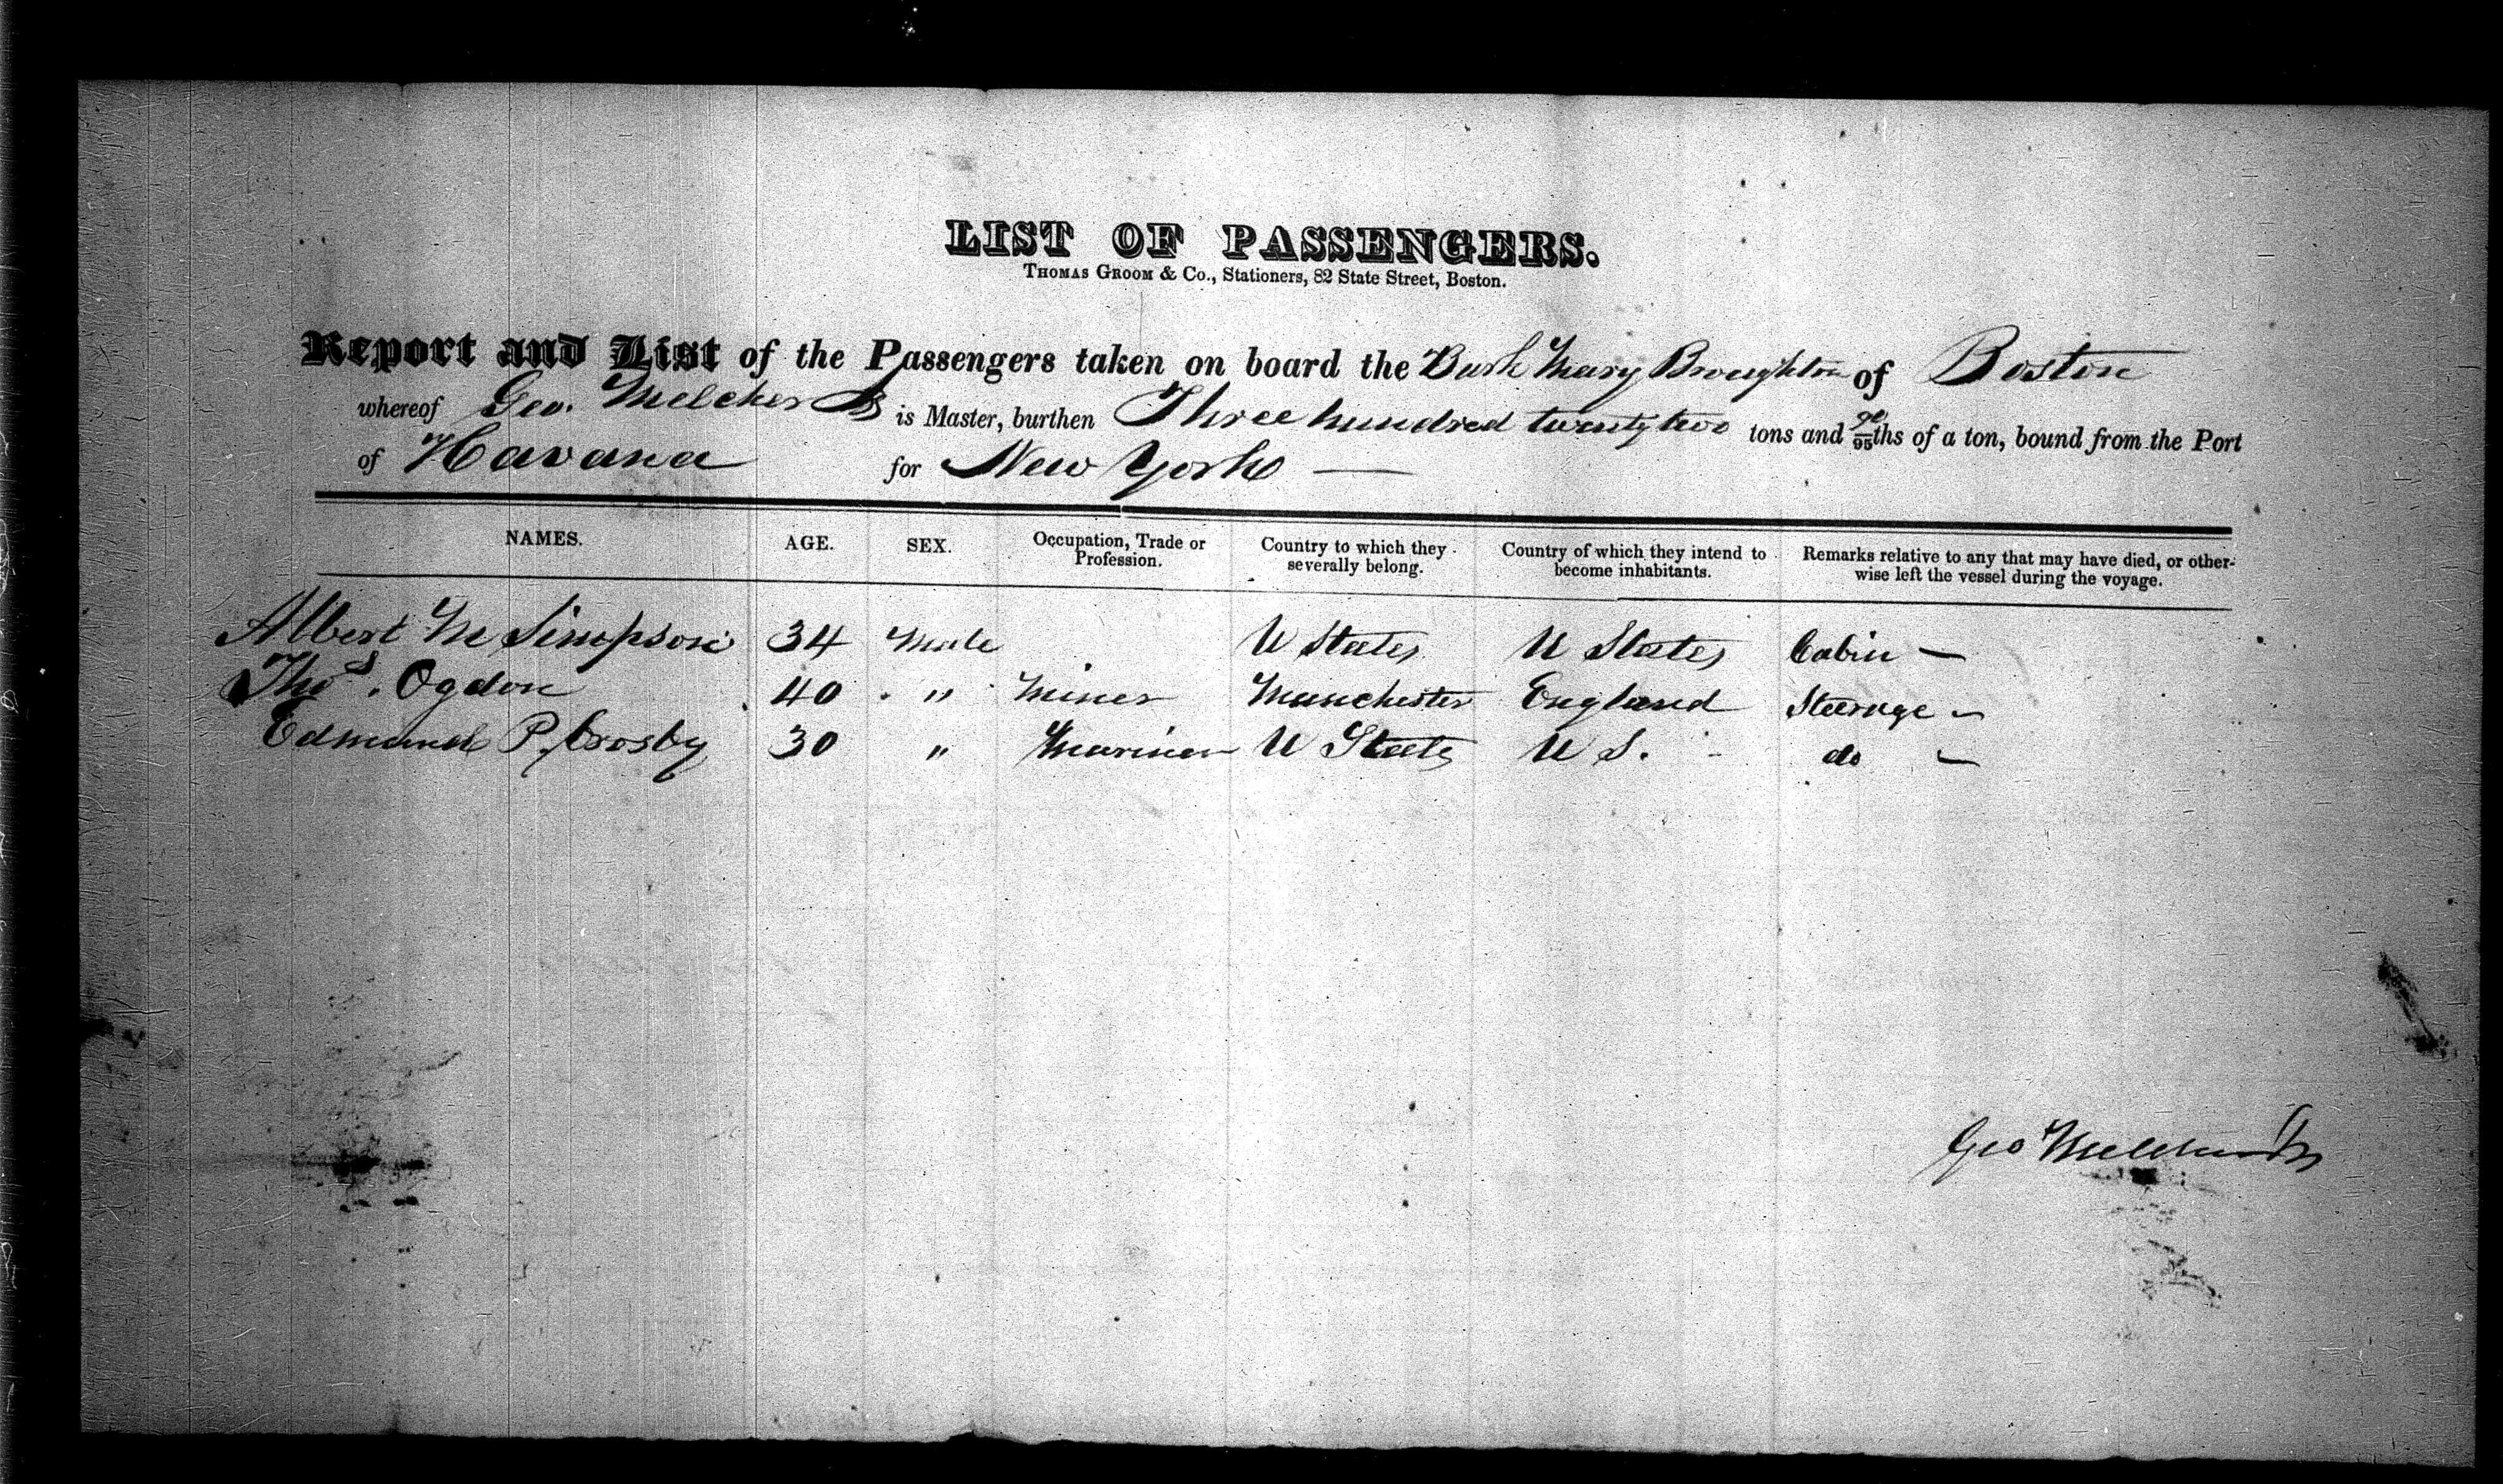 LIST OF PASSENGERS.
THOMAS GROOM & Co., Stationers, 82 State Street, Boston.
Report and List of the Passengers taken on board the Bark Mary Broughton of Boston
whereof Geo. Melcher Jr is Master, burthen Three hundred twenty two tons and /95ths of a ton, bound from the Port
of Havana for New York —
NAMES. AGE. SEX. Occupation, Trade or Profession. Country to which they severally belong. Country of which they intend to become inhabitants. Remarks relative to any that may have died, or otherwise left the vessel during the voyage.
Albert M Simpson 34 Male U States U States Cabin —
Thos. Ogdon 40 " Miner Manchester England Steerage —
Edmund P. Crosby 30 " Mariner U States U S. do —
Geo Melcher Jr